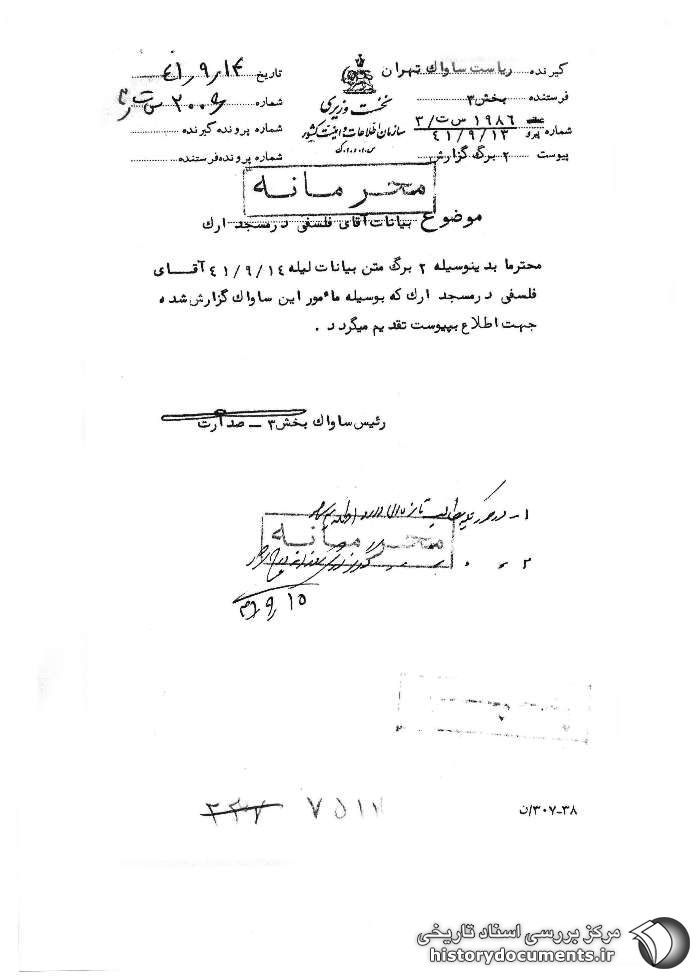 گیرنده ریاست ساواک تهران
تاریخ ۴۱/۹/۱۴
فرستنده بخش ۳
شماره ۲۰۰۶
نخست وزیری
شماره ۱۹۸۶ س ت/۳
پیرو ۴۱/۹/۱۳
شماره پرونده گیرنده
سازمان اطلاعات و امنیت کشور
س.ا.و.ا.ک
پیوست ۲ برگ گزارش
شماره پرونده فرستنده
محرمانه
موضوع بیانات آقای فلسفی در مسجد ارک
محترما بدینوسیله ۲ برگ متن بیانات لیله ۴۱/۹/۱۴ آقـــای
فلسفی در مسجد ارک که بوسیله مأمور این ساواک گزارش شده
جهت اطلاع بپیوست تقدیم میگردد .
رئیس ساواک بخش ۳ ــ صدارت
۱ -
محرمانه
۲
۴۱/۹/۱۵
۲۳۷ ۷۵۱۷
۳۸-۳۰۷/ن
مرکز بررسی اسناد تاریخی
historydocuments.ir